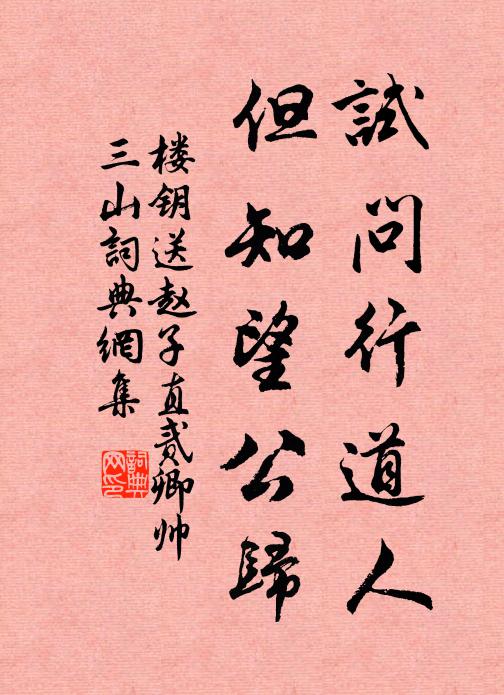 試問行道人
但知望公歸
楼钥送赵子直贰卿帅
三山詞典網集
詞典
网印